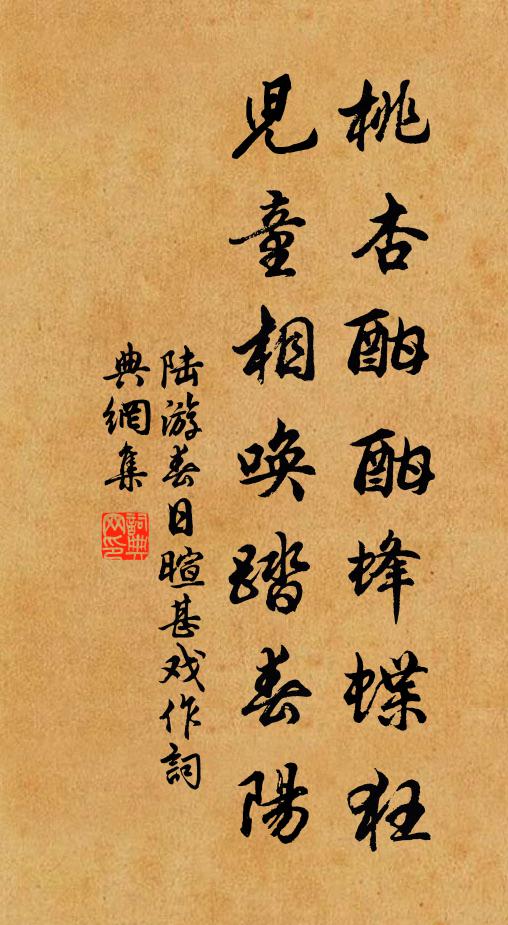 桃杏酣酣蜂蝶狂
兒童相喚踏春陽
陆游春日暄甚戏作詞
典網集
詞典网印